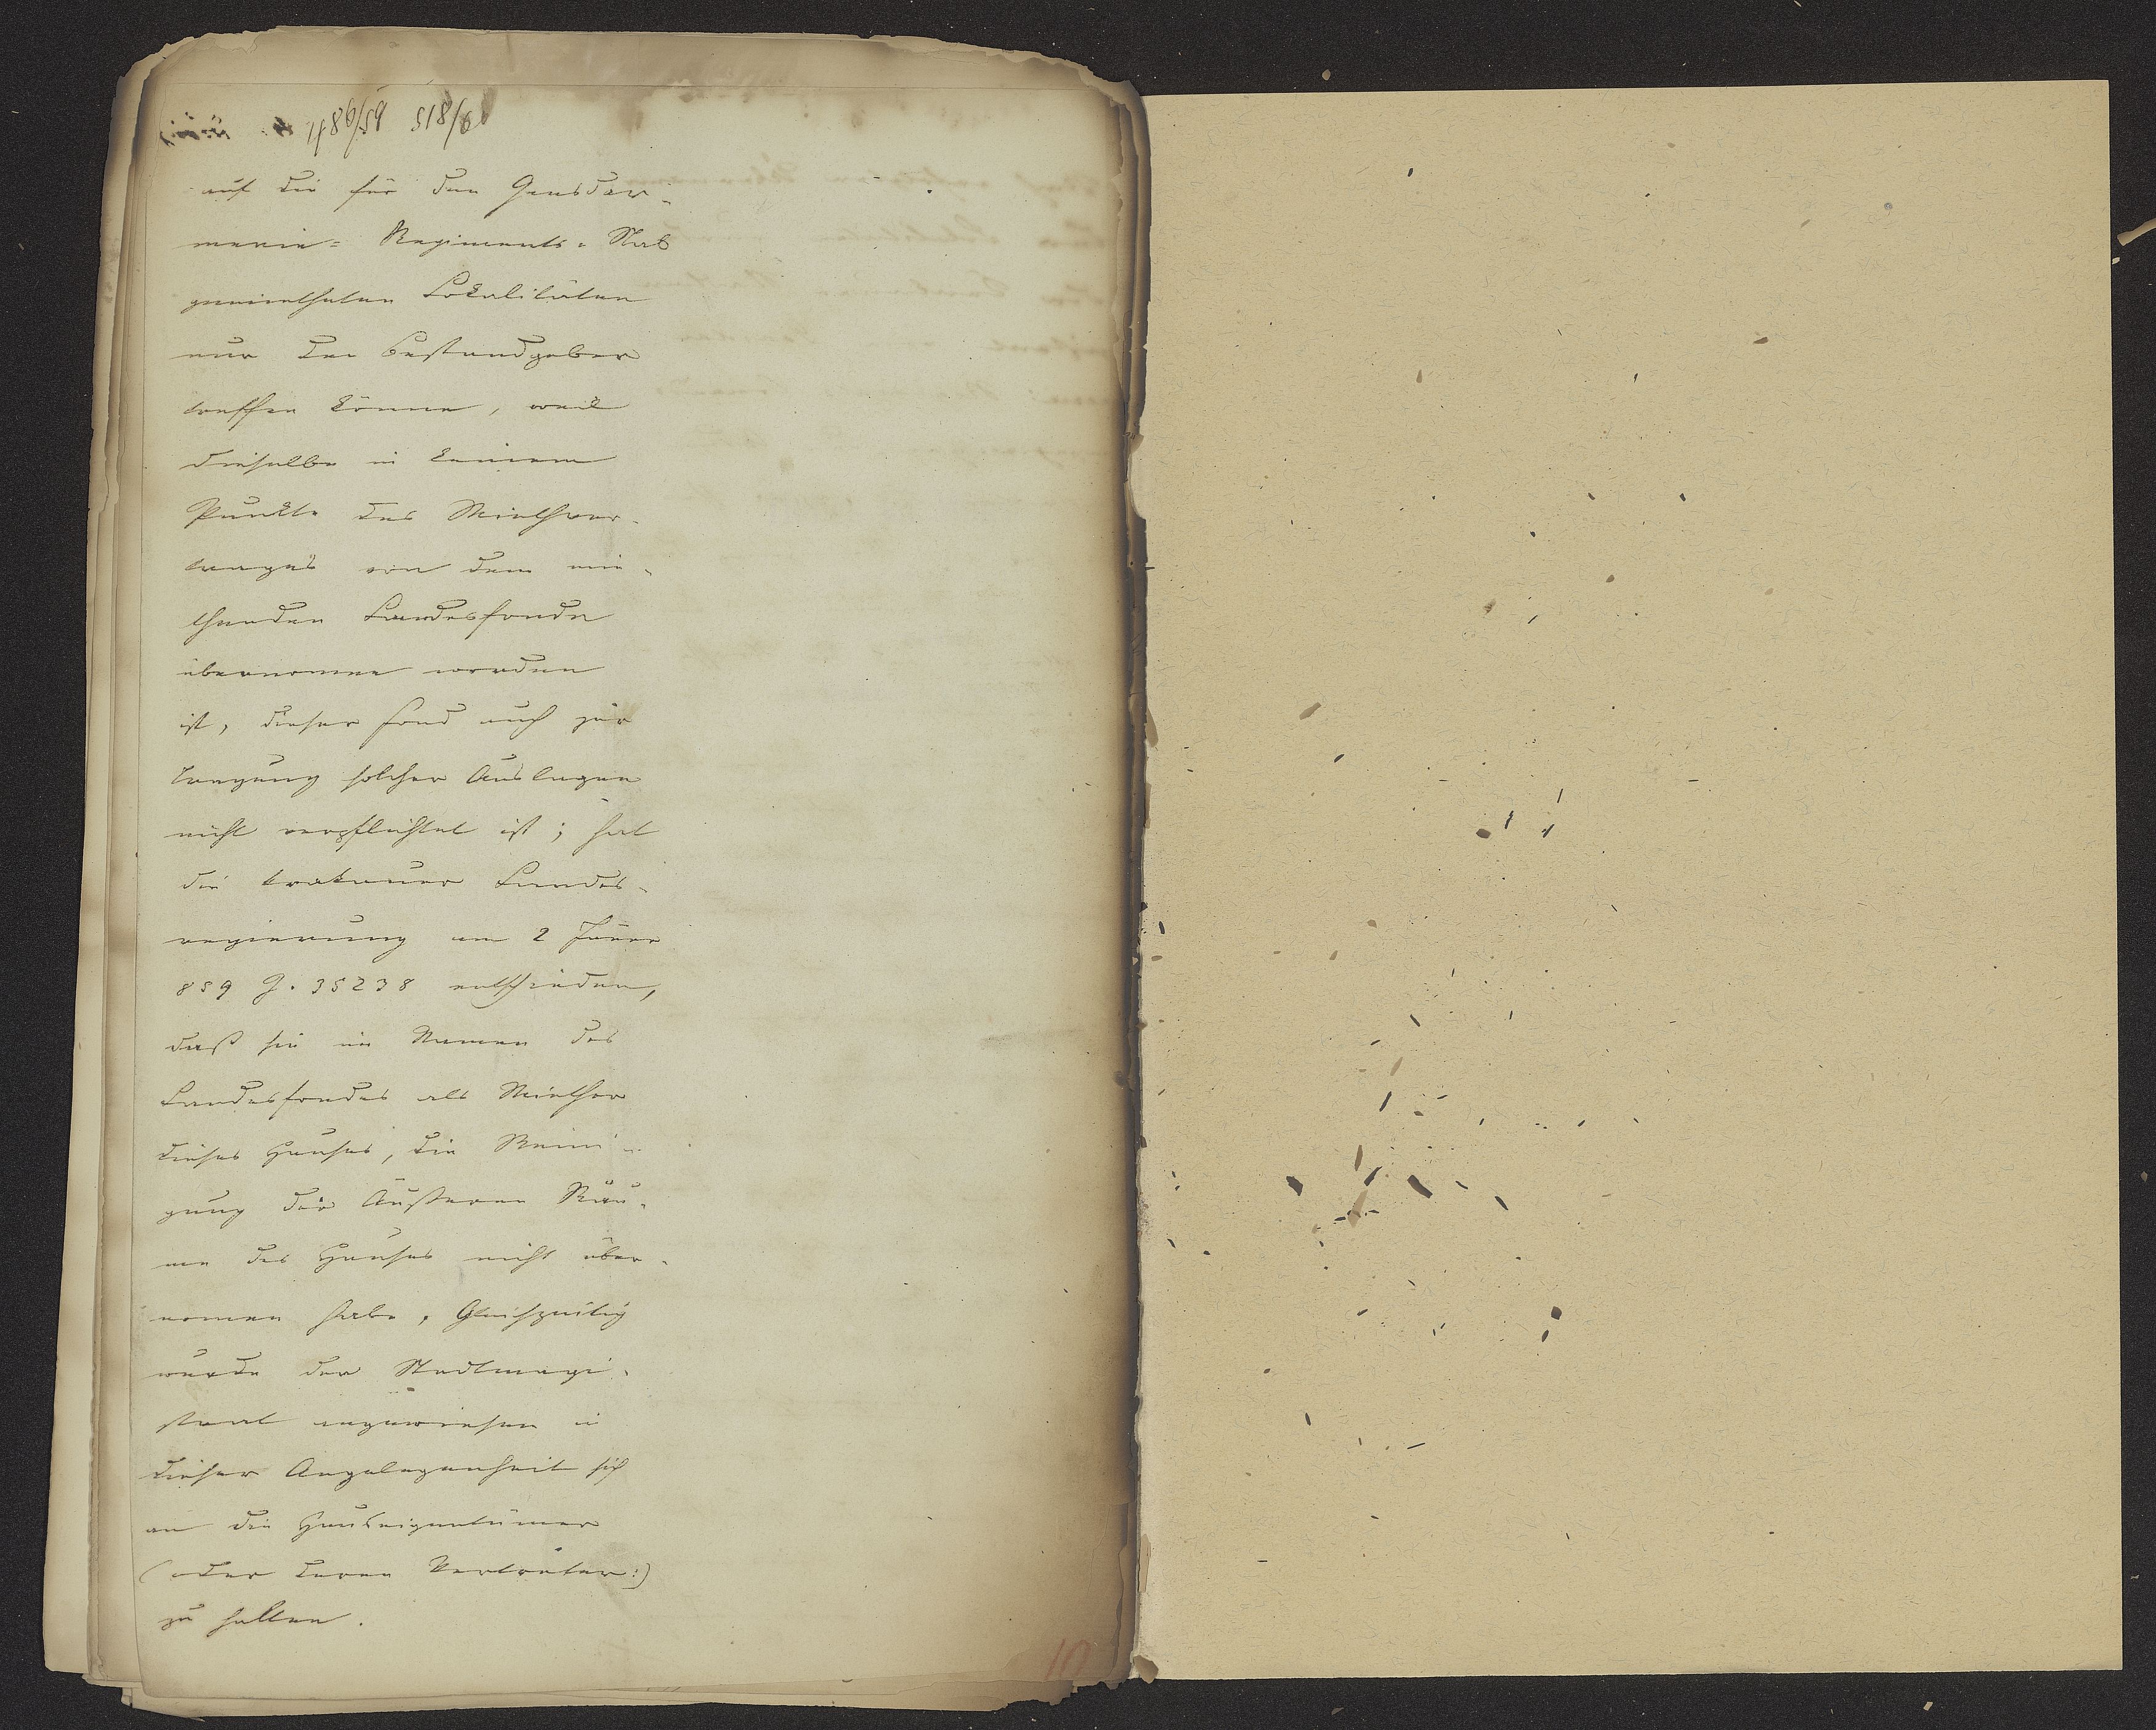 auf die für den Gensdar-
merie- Regiments- Stab
gemietheten Lokalitäten
nur die Bestandgeber
treffen könne, weil
dieselbe in keinem
Punkte des Miethver-
trages von dem mie-
thenden Landesfonde
übernomen worden
ist, dieser Fond auch zur
Tragung solcher Auslagen
nicht verpflichtet ist; hat
die krakauer Landes-
regierung am 2 Jäner
859 Z. 35238 entschieden,
daß sie im Namen des
Landesfondes als Miether
dieses Hauses, die Reini-
gung der äußeren Räu-
me des Hauses nicht über-
nomen habe, Gleichzeitig
wurde der Stadtmagi-
strat angewiesen in
dieser Angelegenheit sich
an die Hauseigentümer
(oder deren Vertreter:)
zu halten.
10